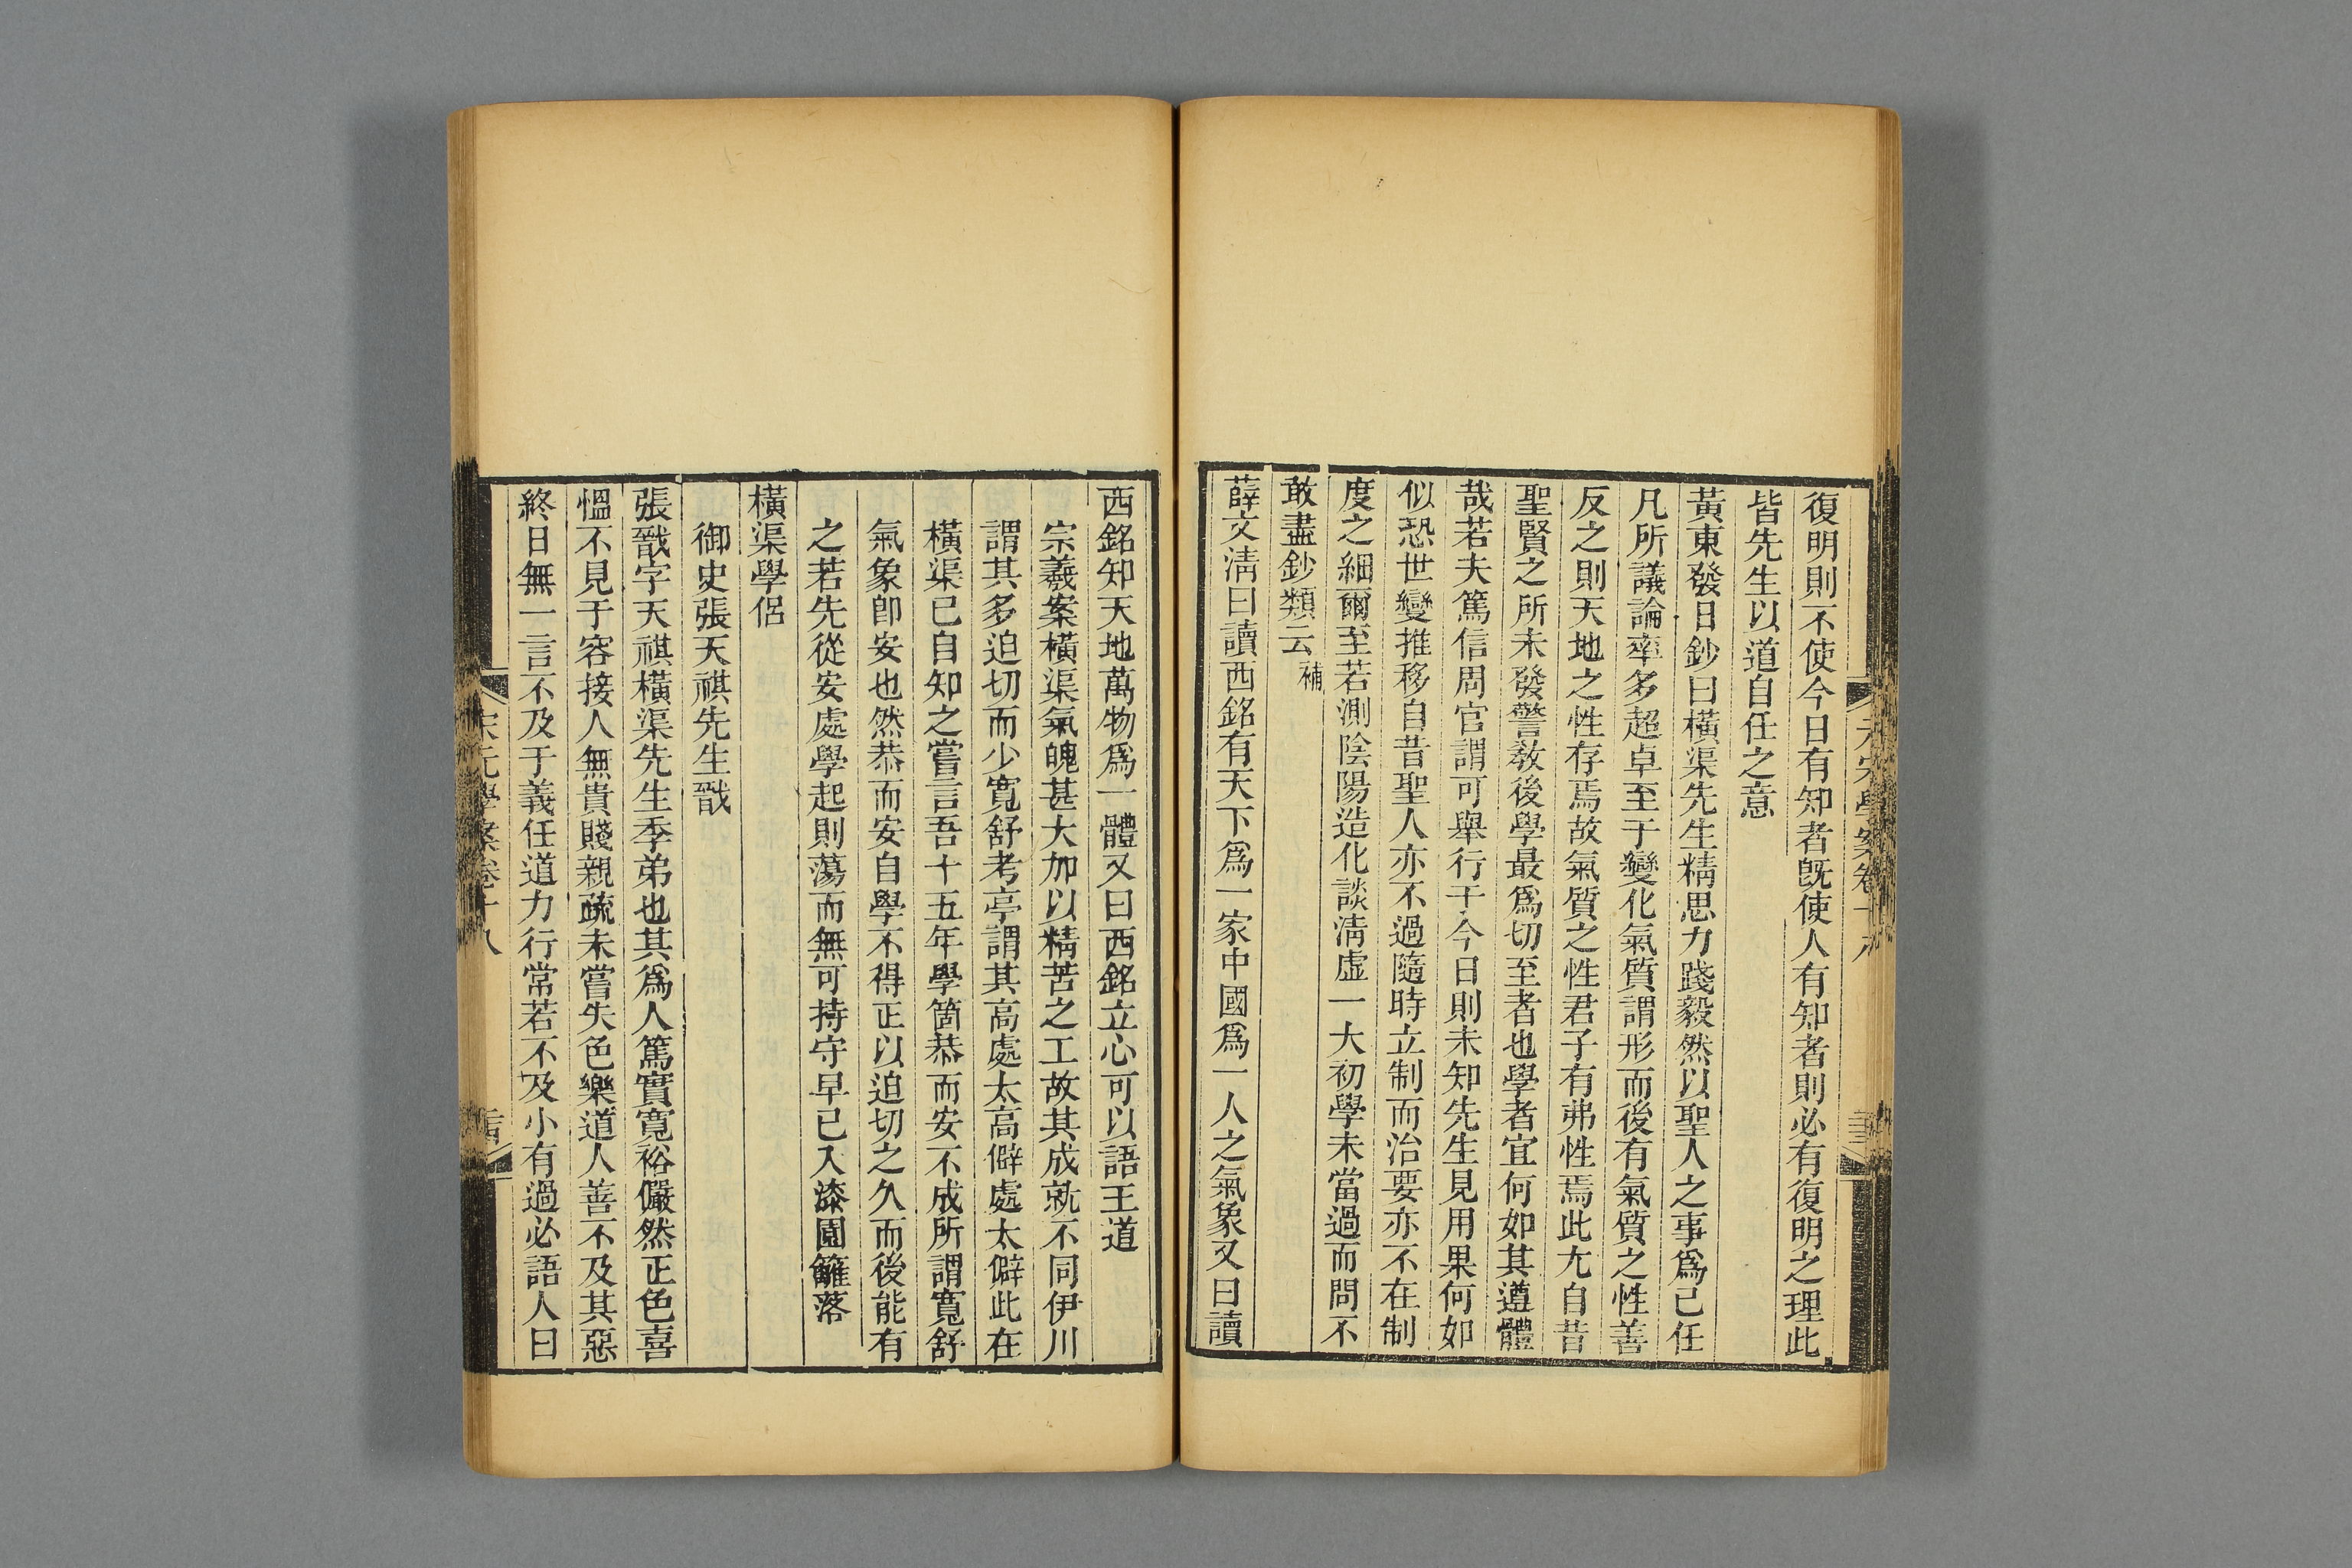 復明則不使今日有知者旣使人有知者則必有復明之理此
皆先生以道自任之意
黃東發日鈔曰橫渠先生精思力踐毅然以聖人之事爲己任
凡所議論率多超卓至于變化氣質謂形而後有氣質之性善
反之則天地之性存焉故氣質之性君子有弗性焉此尢自昔
聖賢之所未發警敎後學最爲切至者也學者宜何如其遵體
哉若夫篤信周官謂可舉行于今日則未知先生見用果何如
似恐世變推移自昔聖人亦不過隨時立制而治要亦不在制
度之細爾至若測陰陽造化談淸虛一大初學未當過而問不
敢盡鈔類云補
薛文淸曰讀西銘有天下爲一家中國爲一人之氣象又曰讀
西銘知天地萬物爲一體又曰西銘立心可以語王道
宗羲案橫渠氣魄甚大加以精苦之工故其成就不同伊川
謂其多迫切而少寬舒考亭謂其高處太高僻處太僻此在
橫渠已自知之嘗言吾十五年學箇恭而安不成所謂寬舒
氣象卽安也然恭而安自學不得正以迫切之久而後能有
之若先從安處學起則蕩而無可持守早已入漆園籬落
橫渠學侶
御史張天祺先生戩
張戩字天祺橫渠先生季弟也其爲人篤實寬裕儼然正色喜
慍不見于容接人無貴賤親疏未嘗失色樂道人善不及其惡
終日無一言不及于義任道力行常若不及小有過必語人曰
宋元學案卷十八